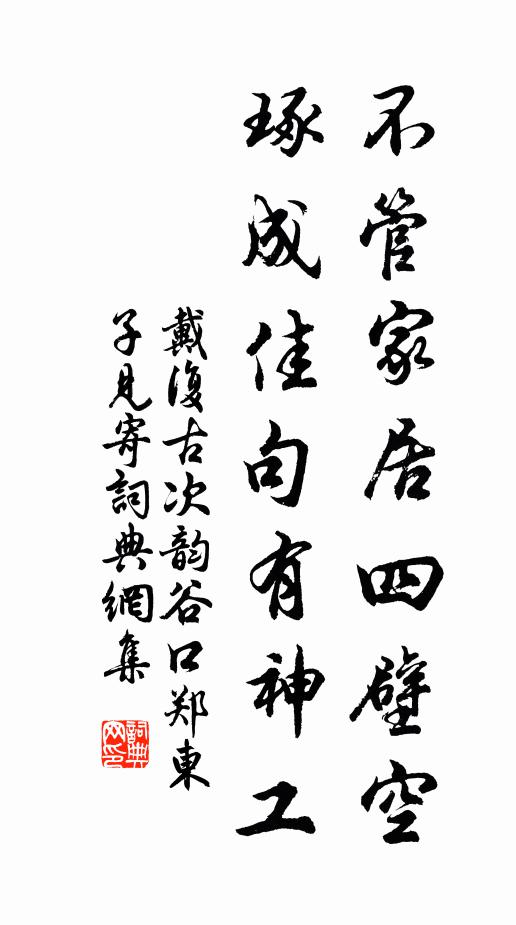 不管家居四壁空
琢成佳句有神工
戴復古次韵谷口郑東
子見寄詞典網集
詞典
网印